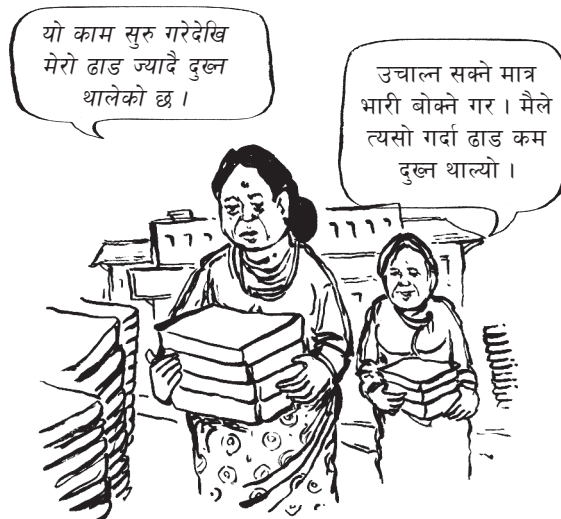 यो काम सुरु गरेदेखि
मेरो ढाड ज्यादै दुख्न
थालेको छ ।
उचाल्न सक्ने मात्र
भारी बोक्ने गर । मैले
त्यसो गर्दा ढाड कम
दुख्न थाल्यो ।